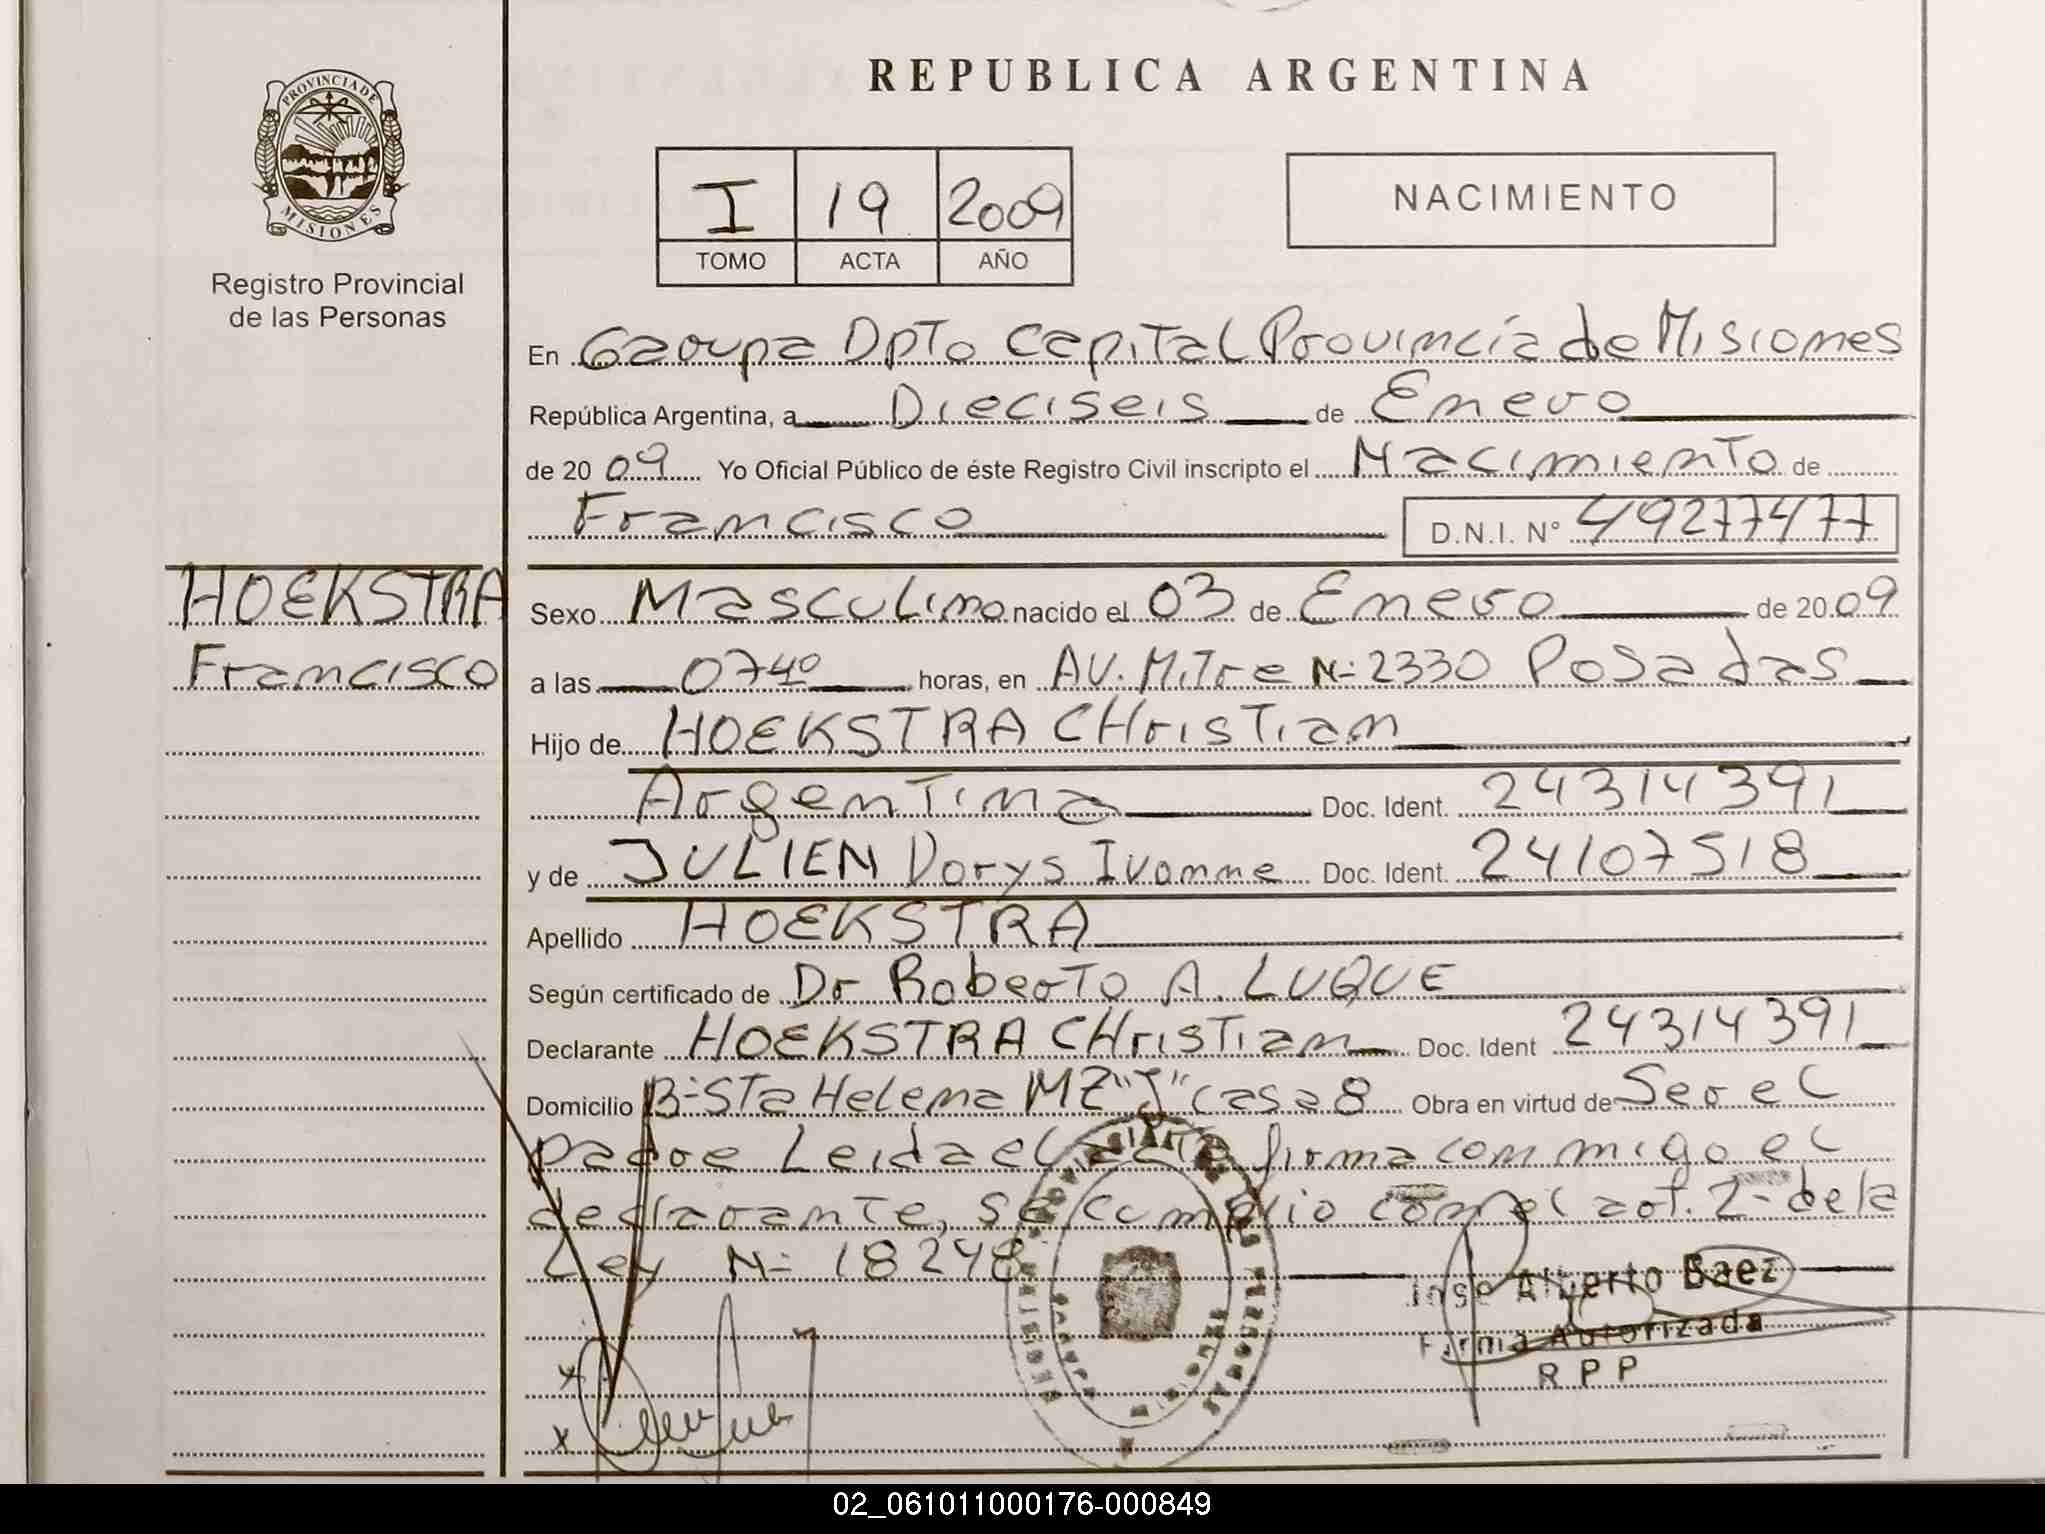 PROVINCIA DE
MISIONES
Registro Provincial
de las Personas
REPUBLICA ARGENTINA
I 19 2009
TOMO ACTA AÑO
NACIMIENTO
En Garupa Dpto Capital Provincia de Misiones
República Argentina, a Dieciseis de Enero
de 20 09 Yo Oficial Público de éste Registro Civil inscripto el Nacimiento de
Francisco D.N.I. N° 49277477
HOEKSTRA
Francisco
Sexo Masculino nacido el 03 de Enero de 20 09
a las 07 40 horas, en AV. Mitre N- 2330 Posadas
Hijo de HOEKSTRA CHristian
Argentina Doc. Ident. 24314391
y de JULIEN Dorys Ivonne Doc. Ident. 24107518
Apellido HOEKSTRA
Según certificado de Dr Roberto A. LUQUE
Declarante HOEKSTRA CHristian Doc. Ident 24314391
Domicilio B- Sta Helena MZ "J" casa 8 Obra en virtud de Ser el
padre Leida el acta firma con migo el
declarante, se cumplio con el art. 2- de la
Ley N- 18248
Jose Alberto Baez
Firma Autorizada
R P P
02_061011000176-000849